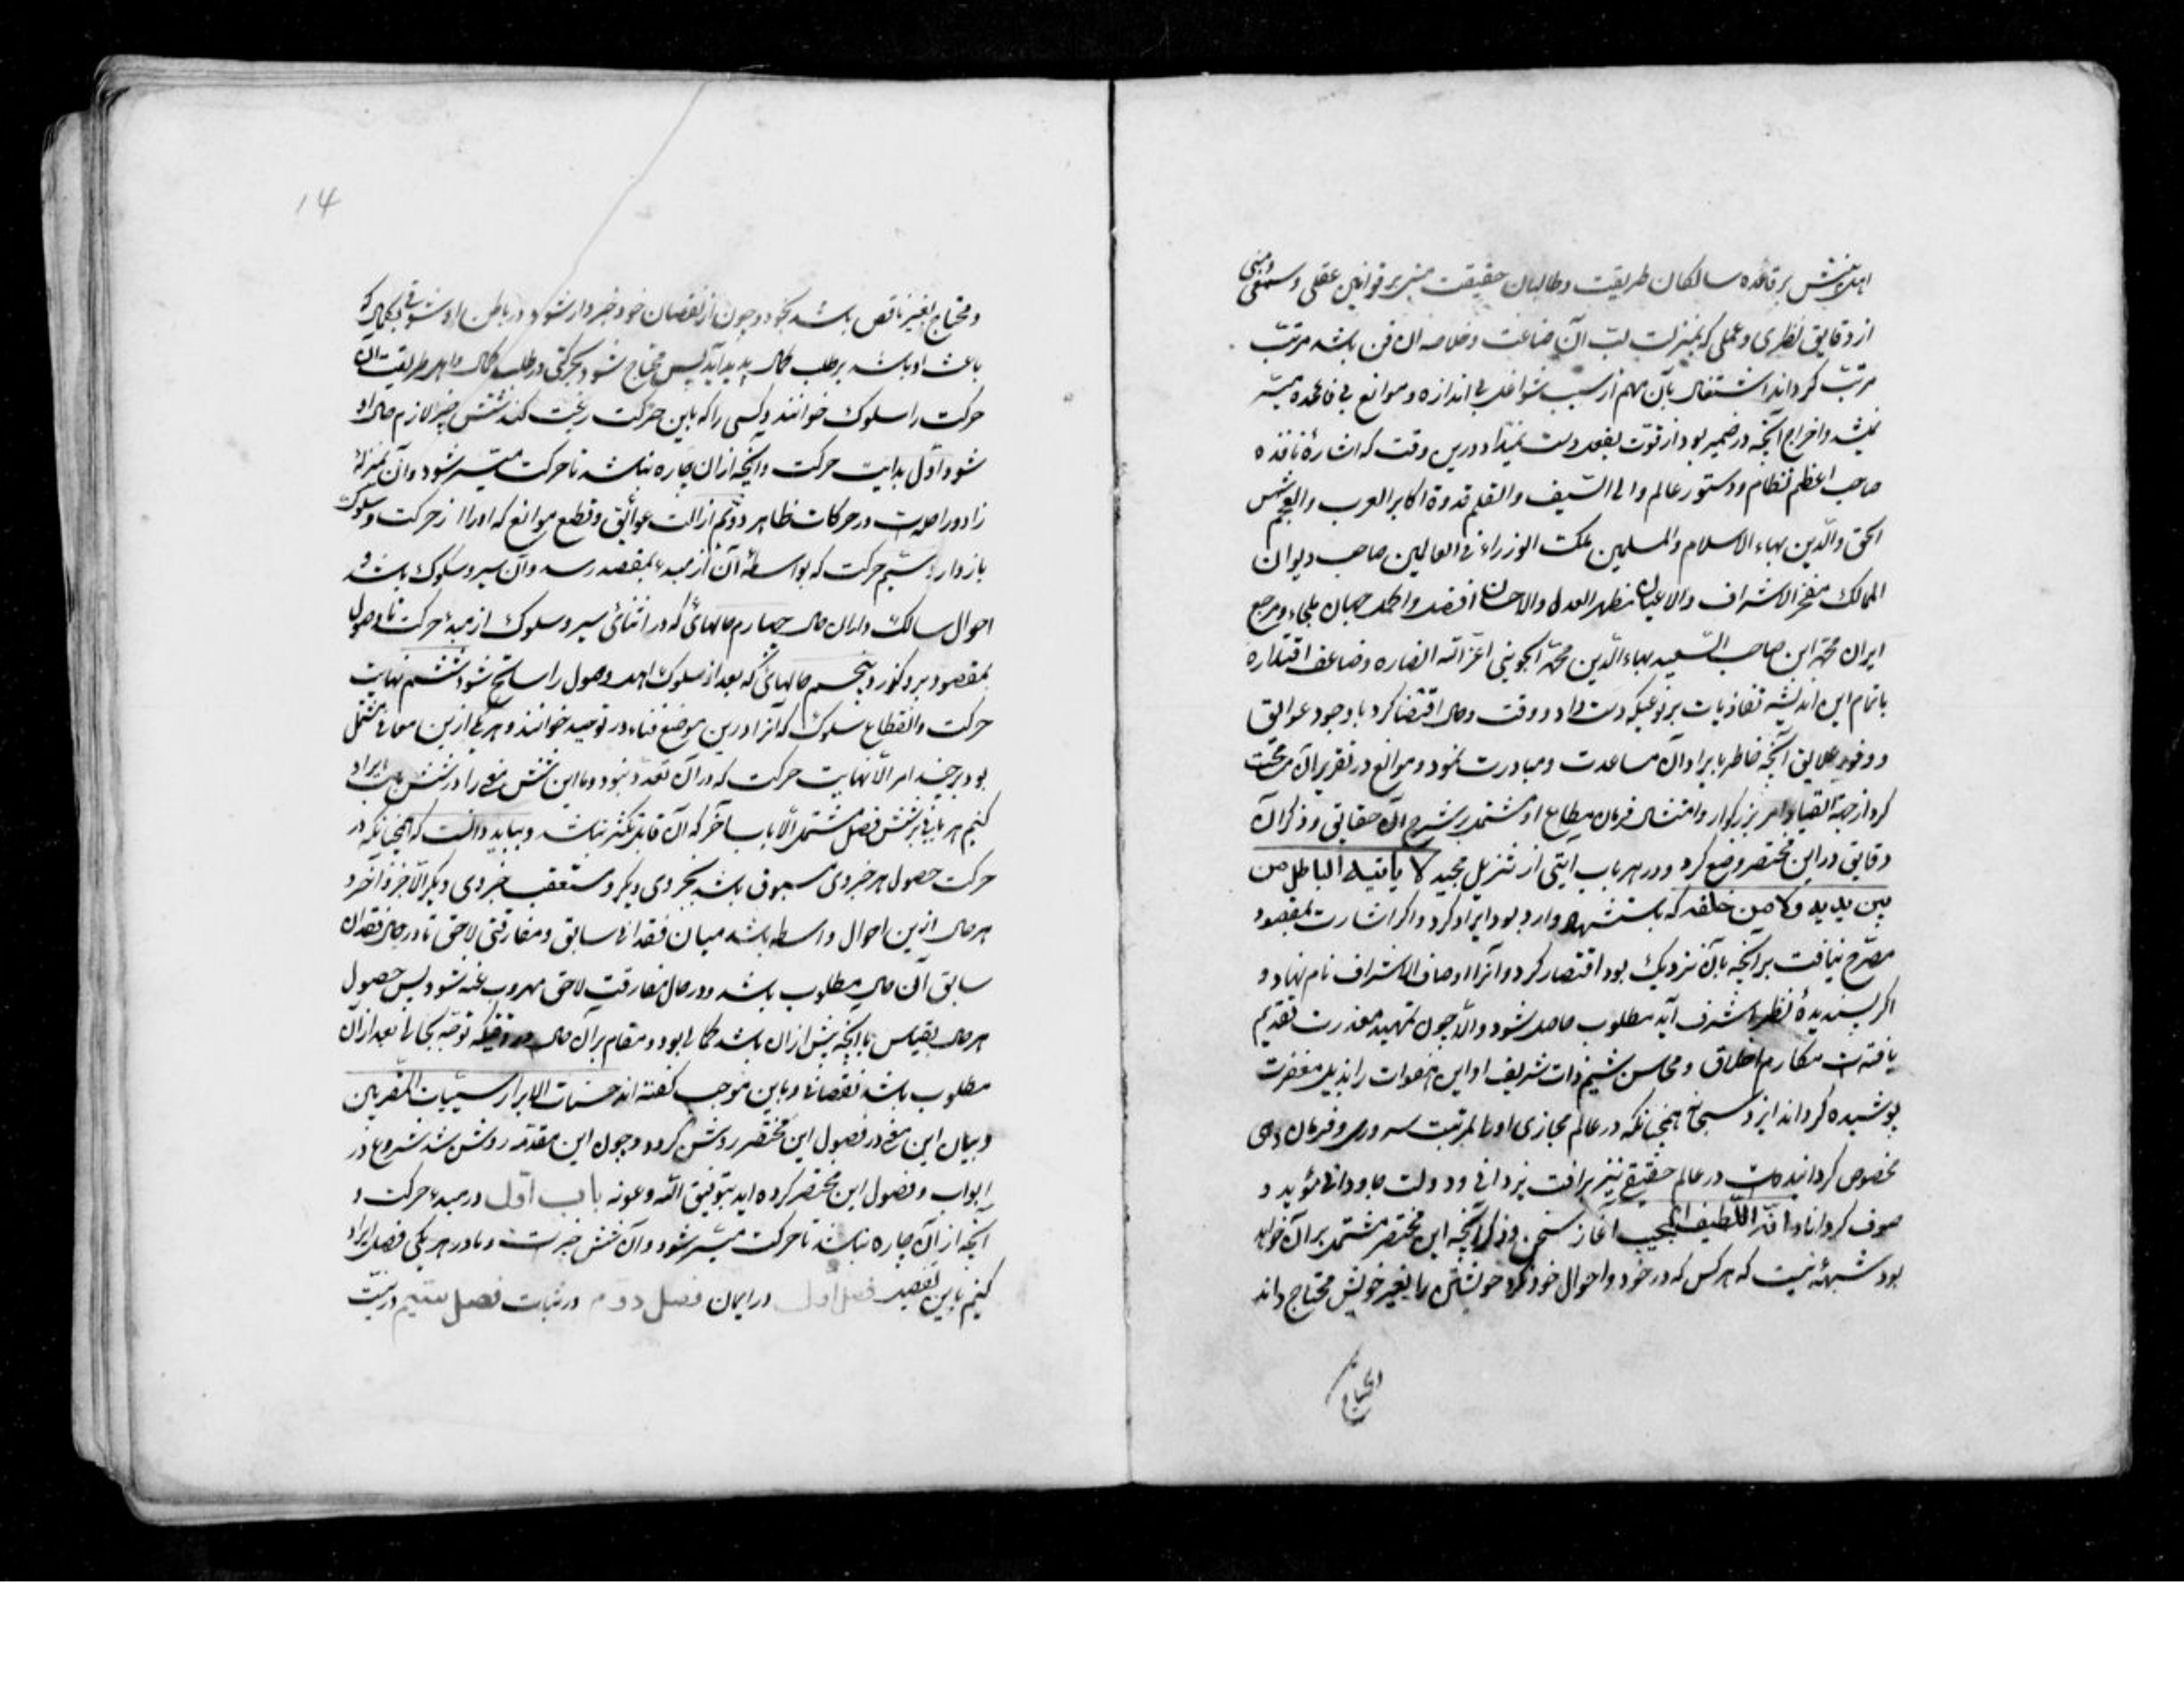 اهل بینش بر قاعده سالکان طریقت و طالبان حقیقت مبنی بر قوانین عقلی و سمعی و مبنی
از دقایق نظری و عملی که بمنزلت لب آن صناعت و خلاصه آن فن باشد مرتب
مرتب کرداند اشتغال بآن مهم از سبب شواغل بی اندازه و موانع بی فایده میسر
نمیشد و اخراج آنچه در ضمیر بود از قوت بفعل دست نمیداد درین وقت که اشارهٔ نافذه
صاحب اعظم نظام و دستور عالم والی السّیف والقلم قدوة اکابر العرب والعجم شمس
الحق والدّین بهاء الاسلام والمسلمین ملک الوزراء فی العالمین صاحب دیوان
الممالک مفخر الاشراف والاعیان مظهر العدل والاحسان افضل و اکمل جهان ملجاء و مرجع
ایران محمّد ابن صاحب السّعید بهاء الدّین محمّد الجوینی اعزّ الله انصاره وضاعف اقتداره
باتمام این اندیشه نفاذ یافت بر نوعیکه دست داد و وقت و حال اقتضا کرد با وجود عوایق
و وفور علایق آنچه خاطر بایراد آن مساعدت و مبادرت نمود و موانع در تقریر آن مسامحت
کرد از جهة انقیاد امر بزرکوار و امتثال فرمان مطاع او مشتمل بر شرح آن حقایق و ذکر آن
دقایق در این مختصر وضع کرد و در هر باب آیتی از تنزیل مجید لا یاتیه الباطل من
بین یدیه ولا من خلفه که باستشهاد وارد بود ایراد کرد و اکر اشارت بمقصود
مصرّح نیافت بر آنچه بآن نزدیک بود اقتصار کرد و آنرا اوصاف الاشراف نام نهاد و
اکر پسندیدهٔ نظر اشرف آید مطلوب حاصل شود والّا چون تمهید معذرت تقدیم
یافته است مکارم اخلاق و محاسن شیم ذات شریف او این هفوات را بذیل مغفرت
پوشیده کرداند ایزد سبحانه همچنانکه در عالم مجازی او را بمرتبت سروری و فرمان دهی
مخصوص کردانیده است در عالم حقیقی نیز برافت یزدانی و دولت جاودانی مؤید و
موصوف کرداناد انّه اللّطیف المجیب آغاز سخن و ذکر آنچه این مختصر مشتمل بر آن خواهد
بود شبههٔ نیست که هر کس که در خود و احوال خود نکرد خویشتن را بغیر خویش محتاج داند
و محتاج
14
و محتاج بغیر ناقص باشد بخود و چون از نقصان خود خبردار شود در باطن او شوقی بکمال که
باعث او باشد بر طلب کمال پدید آید پس محتاج شود بحرکتی در طلب کمال و اهل طریقت آن
حرکت را سلوک خوانند و کسی را که باین حرکت رغبت کند شش چیز لازم حال او
شود اوّل بدایت حرکت و آنچه از آن چاره نباشد تا حرکت میسّر شود و آن بمنزلهٔ
زاد و راحله است در حرکات ظاهر دوم ازالت عوائق و قطع موانع که او را از حرکت و سلوک
باز دارد سیم حرکت که بواسطهٔ آن از مبدء بمقصد رسد و آن سیر و سلوک باشد و
احوال سالک در آن حال چهارم حالهائی که در اثنای سیر و سلوک از مبدء حرکت تا وصول
بمقصود برو کذرد پنجم حالهائی که بعد از سلوک اهل وصول را سانح شود ششم نهایت
حرکت و انقطاع سلوک که آنرا درین موضع فناء در توحید خوانند و هر یک ازین معانی مشتمل
بود بر چند امر الّا نهایت حرکت که در آن تعدّد نبود و ما این شش معنی را در شش باب ایراد
کنیم هر بابی بر شش فصل مشتمل الّا باب آخر که آن قابل تکثر نباشد و بباید دانست که همچنانکه در
حرکت حصول هر جزوی مسبوق باشد بجزوی دیکر و مستعقب جزوی دیکر الّا جزو آخر و
هر حال ازین احوال واسطه باشد میان فقدانی سابق و مفارقتی لاحق تا در حال فقدان
سابق آن حال مطلوب باشد و در حال مفارقت لاحق مهروب عنه شود پس حصول
هر حال بقیاس با آنچه پیش از آن باشد کمال بود و مقام بر آن حال در وقتیکه توجّه بحالی بعد از آن
مطلوب باشد نقصان و باین موجب کفته اند حسنات الابرار سیّیات المقربین
و بیان این معنی در فصول این مختصر روشن کردد و چون این مقدّمه روشن شد شروع در
ابواب و فصول این مختصر کرده اید بتوفیق الله و عونه باب اوّل در مبدء حرکت و
آنچه از آن چاره نباشد تا حرکت میسّر شود و آن شش چیز است و ما در هر یکی فصلی ایراد
کنیم باین تفصیل فصل اوّل در ایمان فصل دوم در ثبات فصل سیم در نیّت